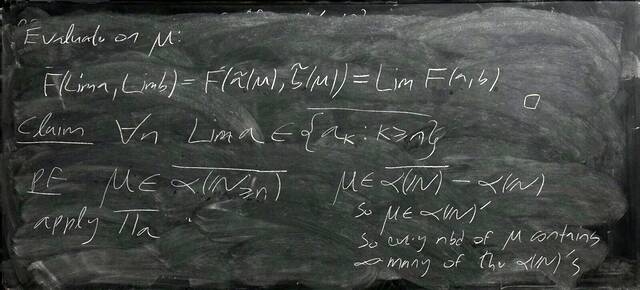 Evaluate on μ:
F(Lim a, Lim b) = F(ã(μ), b̃(μ)) = Lim F(a, b) □
Claim ∀n Lim a ∈ \overline{{a_k : k ≥ n}}
PF μ ∈ \overline{α(ℕ_{≥n})}
apply Π_a
μ ∈ \overline{α(ℕ)} - α(ℕ)
So μ ∈ α(ℕ)'
So every nbd of μ contains
∞ many of the α(ℕ)'s